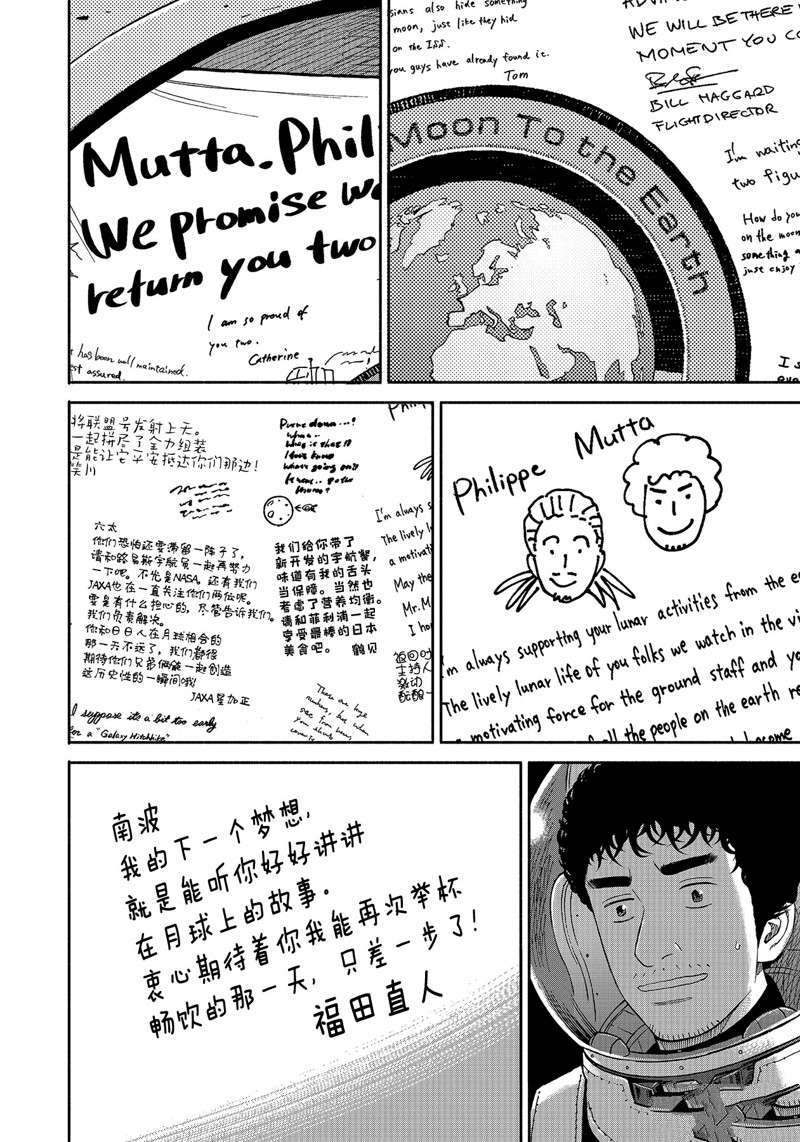 Mutta. Phil
We promise we
return you two
I am so proud of
you two.
Catherine
has been well maintained.
st assured.
sians also hide something
moon, just like they hid
on the ISS.
you guys have already found it.
Tom
WE WILL BE THERE
MOMENT YOU CO
BILL MAGGARD
FLIGHT DIRECTOR
I'm waiting
two figu
How do you
on the moon
something
just enjoy
Moon To the Earth
将联盟号发射上天。
一起拼尽了全力组装
是能让它平安抵达你们那边!
笑川
六太
你们恐怕还要滞留一阵子了,
请和路易斯宇航员一起再努力
一下吧。不光是NASA,还有我们
JAXA也在一直关注你们两位呢。
要是有什么担心的,尽管告诉我们。
我们负责解决。
你和日日人在月球相会的
那一天不远了,我们都很
期待你们兄弟俩能一起创造
这历史性的一瞬间哦!
JAXA星加正
I suppose it's a bit too early
for a "Galaxy Hitchhike"
what is that!?
我们给你带了
新开发的宇航餐,
味道有我的舌头
当保障。当然也
考虑了营养均衡。
请和菲利浦一起
享受最棒的日本
美食吧。 鹤贝
These are huge
I'm always s
The lively lu
a motivati
May the
Mr. M
I ho
返回时
主持人
激动
Philippe
Mutta
I'm always supporting your lunar activities from the ea
The lively lunar life of you folks we watch in the vi
a motivating force for the ground staff and yo
all the people on the earth re
become
南波
我的下一个梦想,
就是能听你好好讲讲
在月球上的故事。
衷心期待着你我能再次举杯
畅饮的那一天,只差一步了!
福田直人